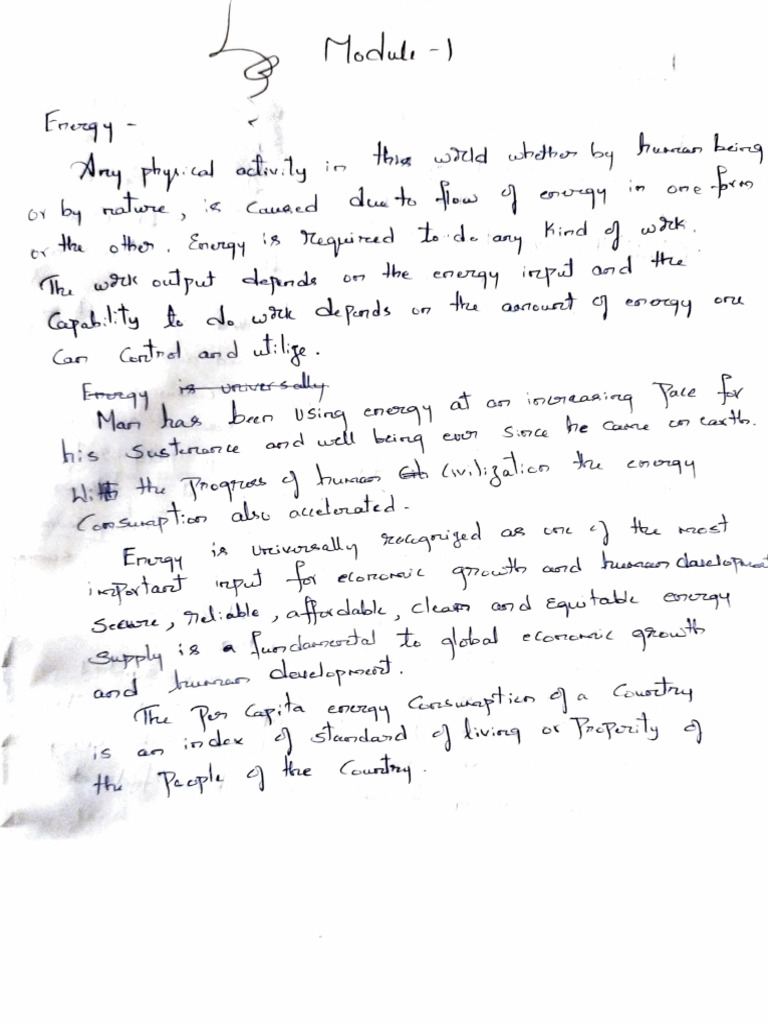 Module - 1
Energy -
Any physical activity in this world whether by human being
or by nature, is caused due to flow of energy in one form
or the other. Energy is required to do any kind of work.
The work output depends on the energy input and the
Capability to do work depends on the amount of energy one
Can Control and utilize.
Energy is universally
Man has been using energy at an increasing Pace for
his Sustenance and well being ever since he came on earth.
With the Progress of human Civilization the energy
Consumption also accelerated.
Energy is universally recognized as one of the most
important input for economic growth and human development
Secure, reliable, affordable, clean and Equitable energy
Supply is a fundamental to global economic growth
and human development.
The Per Capita energy Consumption of a Country
is an index of standard of living or Properity of
the People of the Country.